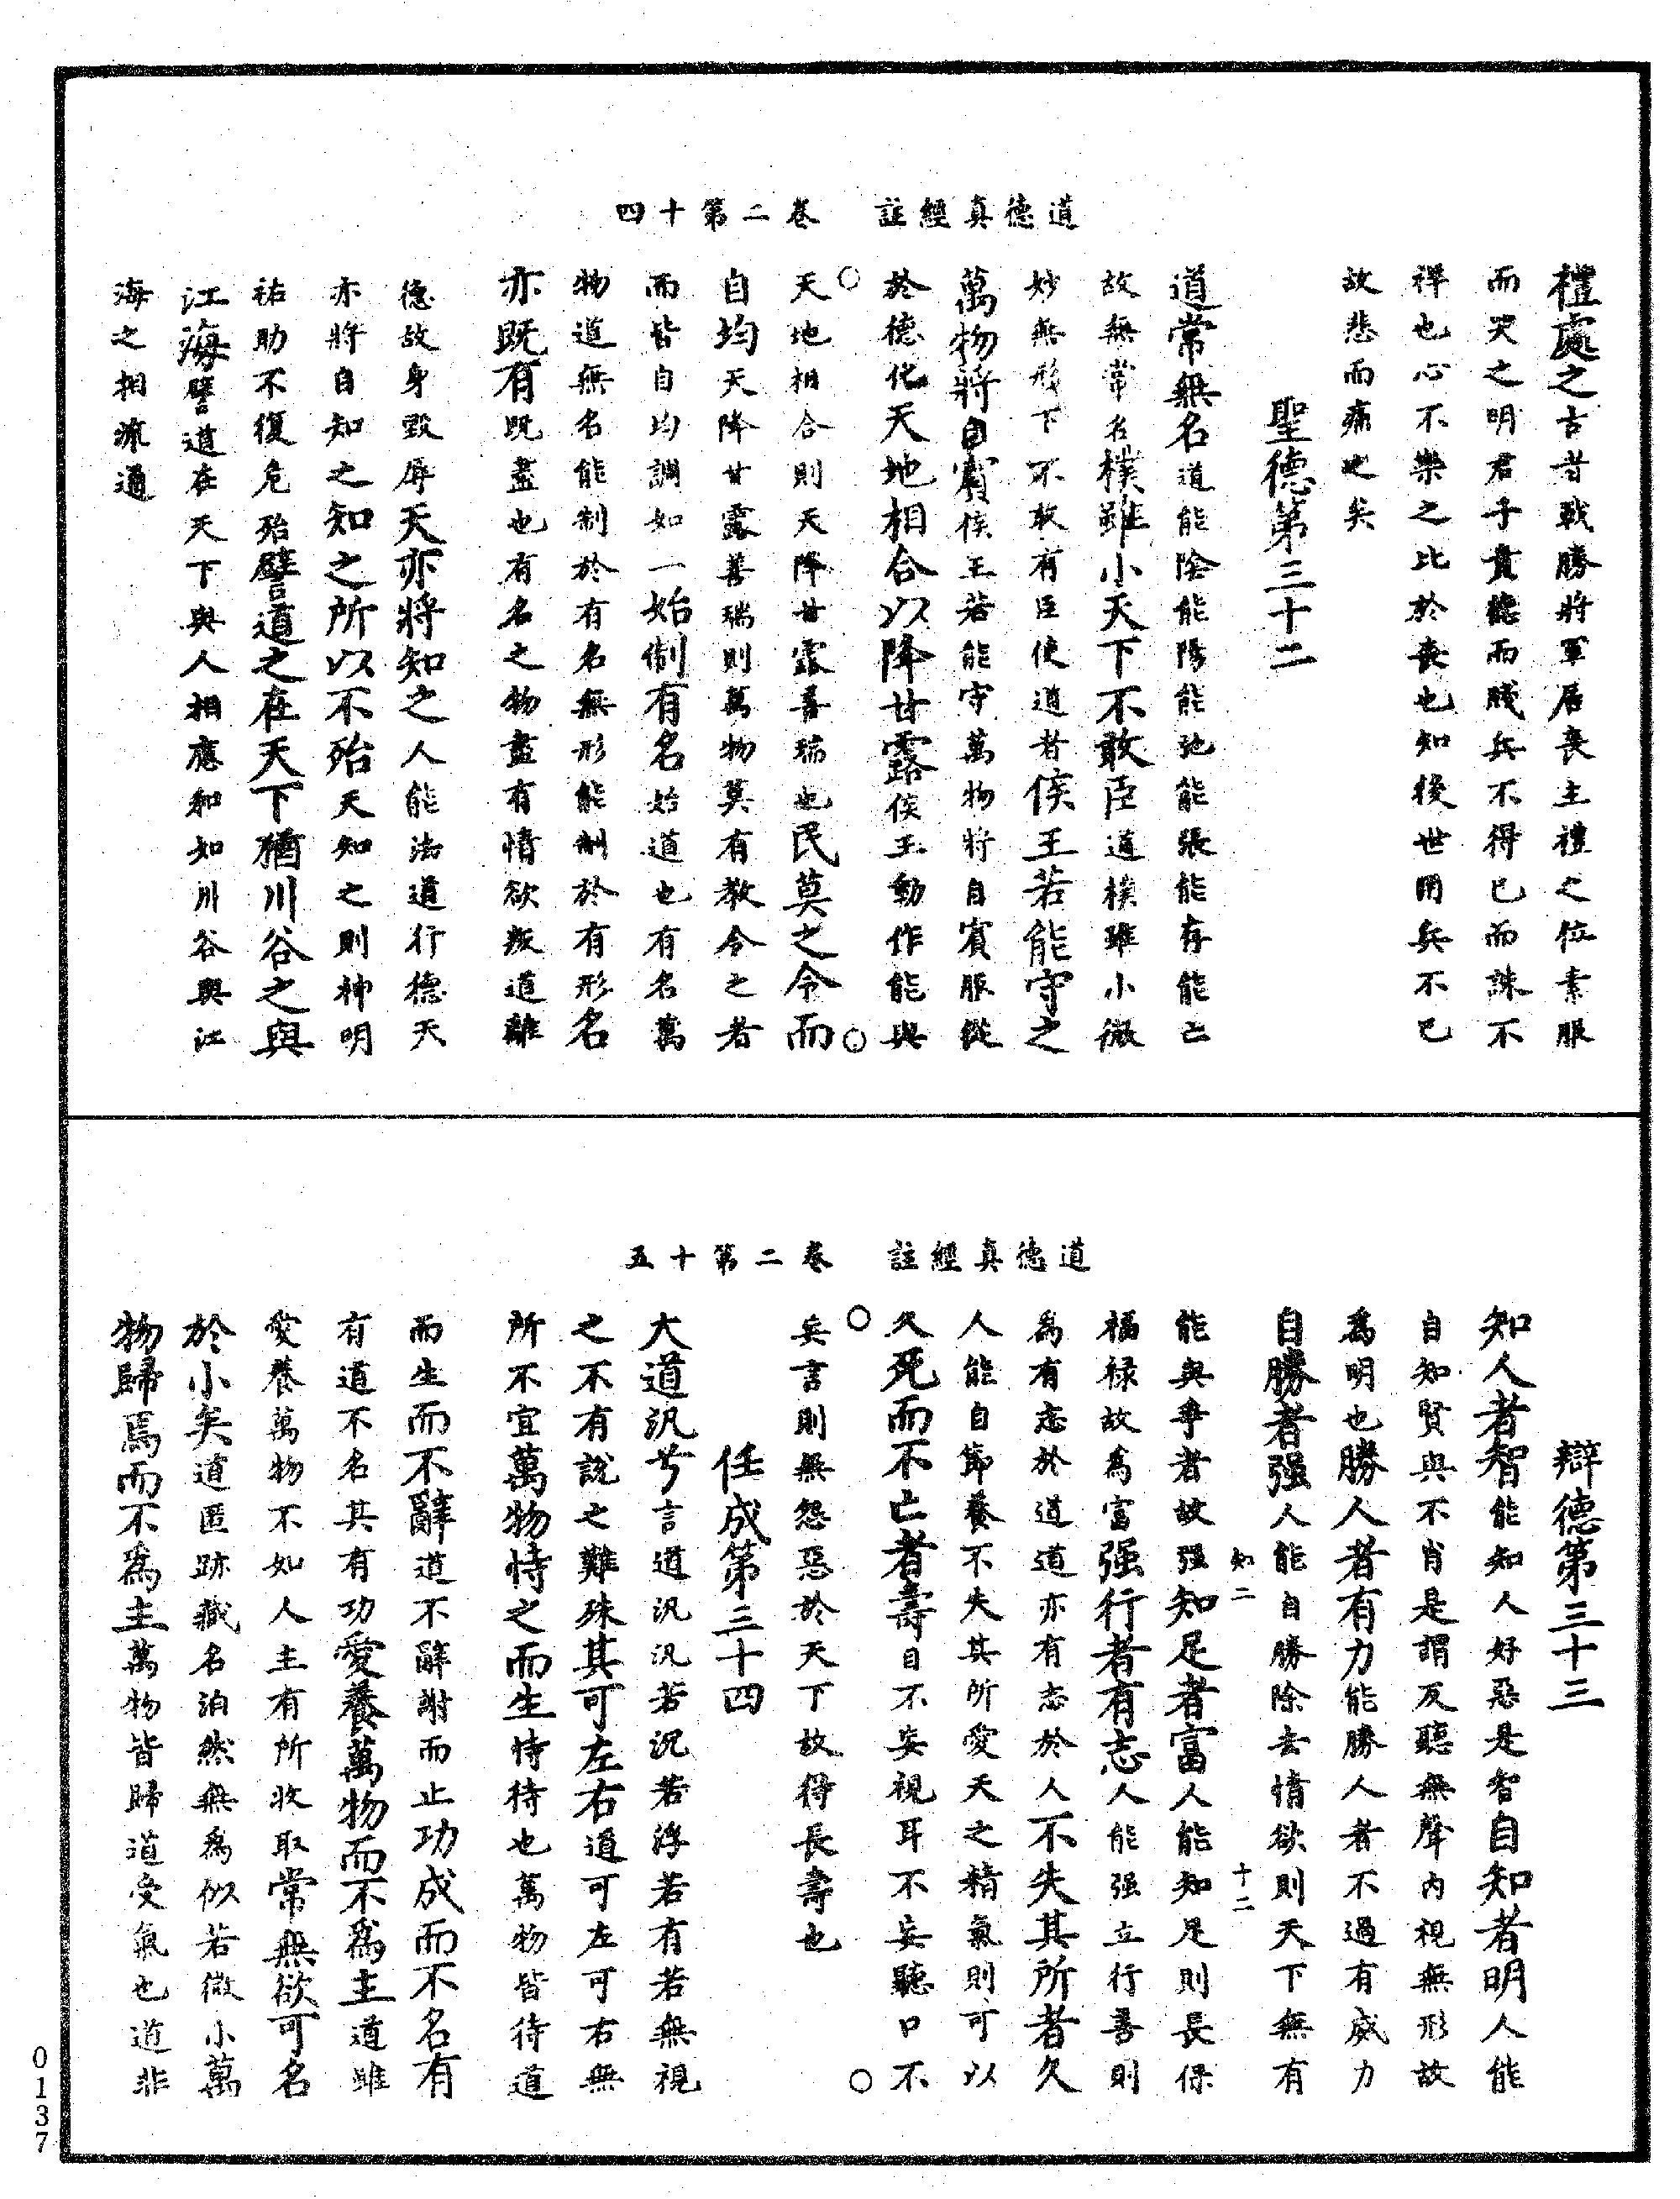 道德真經註　卷二第十四
禮處之古者戰勝將軍居喪主禮之位素服
而哭之明君子貴德而賤兵不得已而誅不
祥也心不樂之比於喪也知後世用兵不已
故悲而痛之矣
聖德第三十二
道常無名道能陰能陽能弛能張能存能亡
故無常名樸雖小天下不敢臣道樸雖小微
妙無形下不敢有臣使道者侯王若能守之
萬物將自賓侯王若能守萬物將自賓服從
於德化天地相合以降甘露侯王動作能與
天地相合則天降甘露善瑞也民莫之令而
自均天降甘露善瑞則萬物莫有教令之者
而皆自均調如一始制有名始道也有名萬
物道無名能制於有名無形能制於有形名
亦既有既盡也有名之物盡有情欲叛道離
德故身毀辱天亦將知之人能法道行德天
亦將自知之知之所以不殆天知之則神明
祐助不復危殆譬道之在天下猶川谷之與
江海譬道在天下與人相應和如川谷與江
海之相流通
道德真經註　卷二第十五
辯德第三十三
知人者智能知人好惡是智自知者明人能
自知賢與不肖是謂反聽無聲內視無形故
為明也勝人者有力能勝人者不過有威力
自勝者强人能自勝除去情欲則天下無有
知二　十二
能與爭者故强知足者富人能知足則長保
福祿故為富强行者有志人能强立行善則
為有志於道道亦有志於人不失其所者久
人能自節養不失其所愛天之精氣則可以
久死而不亡者壽目不妄視耳不妄聽口不
妄言則無怨惡於天下故得長壽也
任成第三十四
大道汎兮言道汎汎若況若浮若有若無視
之不有說之難殊其可左右道可左可右無
所不宜萬物恃之而生恃待也萬物皆待道
而生而不辭道不辭謝而止功成而不名有
有道不名其有功愛養萬物而不為主道雖
愛養萬物不如人主有所收取常無欲可名
於小矣道匿跡藏名泊然無為似若微小萬
物歸焉而不為主萬物皆歸道受氣也道非
0137